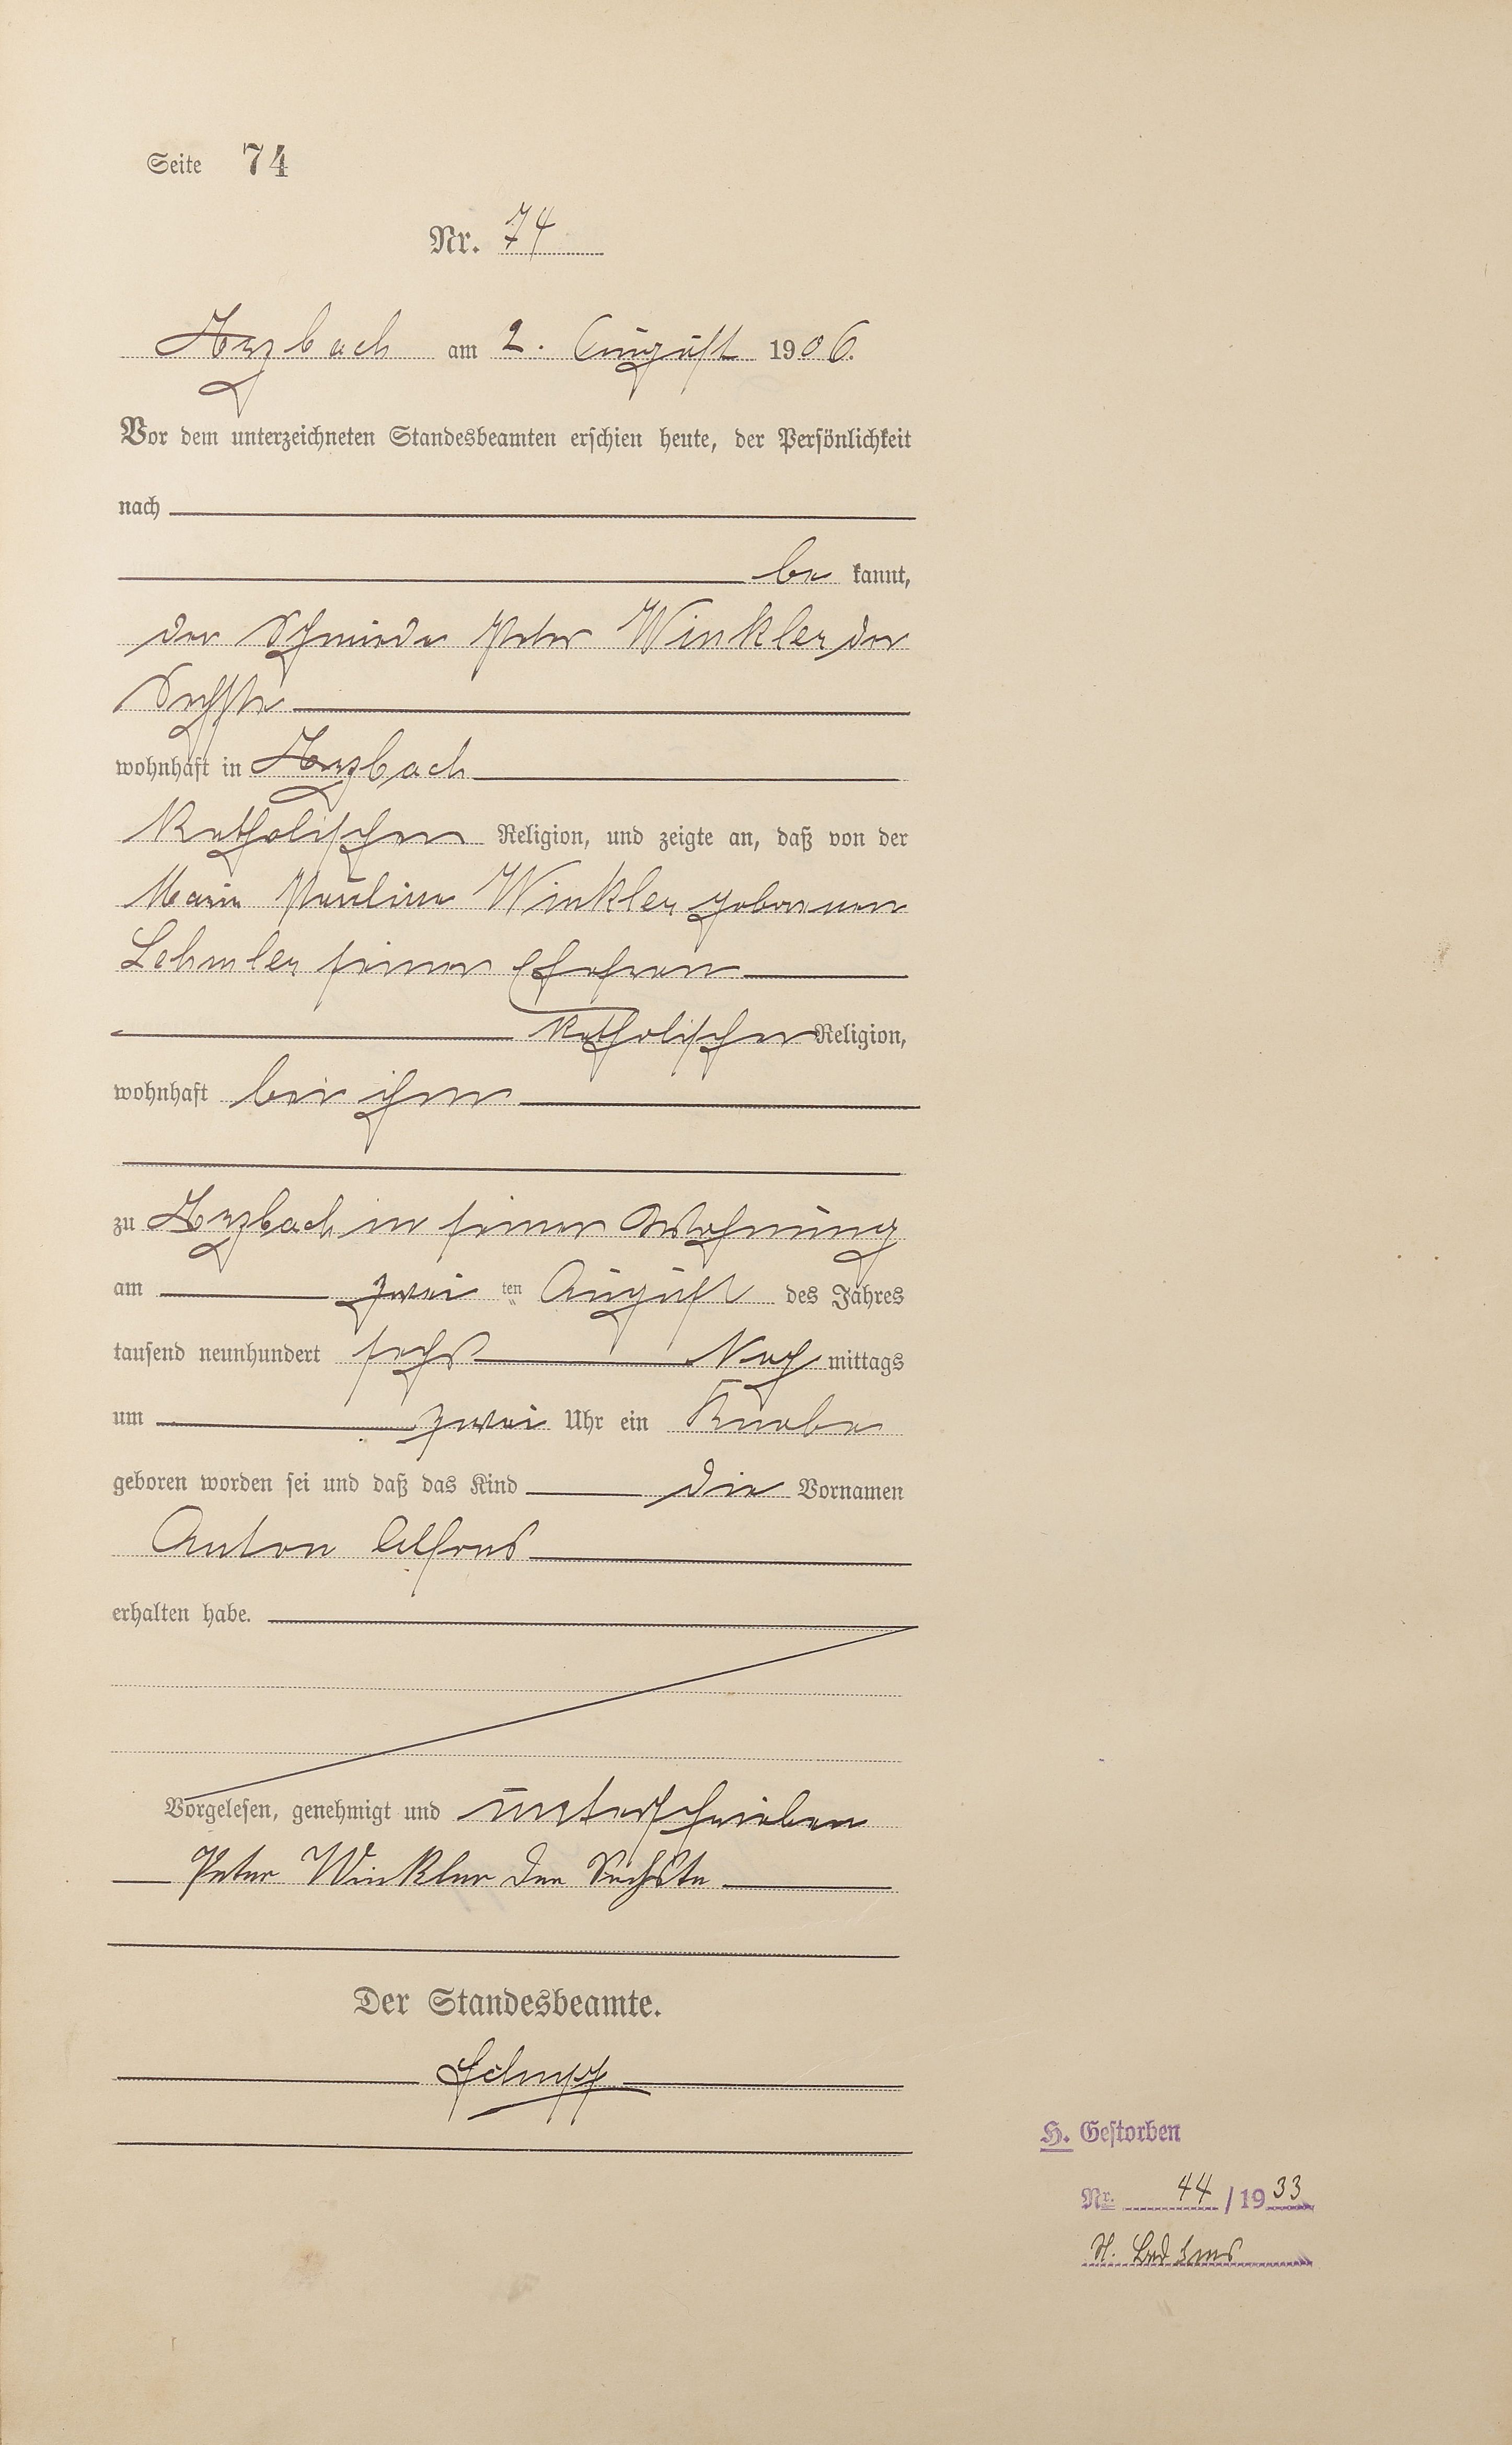 Seite 74
Nr. 74
Arzbach am 2. August 1906.
Vor dem unterzeichneten Standesbeamten erschien heute, der Persönlichkeit
nach
be kannt,
der Schmiede Peter Winkler der
Sechste
wohnhaft in Arzbach
katholischer Religion, und zeigte an, daß von der
Marie Pauline Winkler geborenen
Lehmler seiner Ehefrau
katholischer Religion,
wohnhaft bei ihm
zu Arzbach in seiner Wohnung
am zwei ten August des Jahres
tausend neunhundert sechs Nach mittags
um zwei Uhr ein Knabe
geboren worden sei und daß das Kind die Vornamen
Anton Alfons
erhalten habe.
Vorgelesen, genehmigt und unterschrieben
Peter Winkler der Sechste
Der Standesbeamte.
H. Gestorben
Nr. 44 / 1933
St. Bad Ems